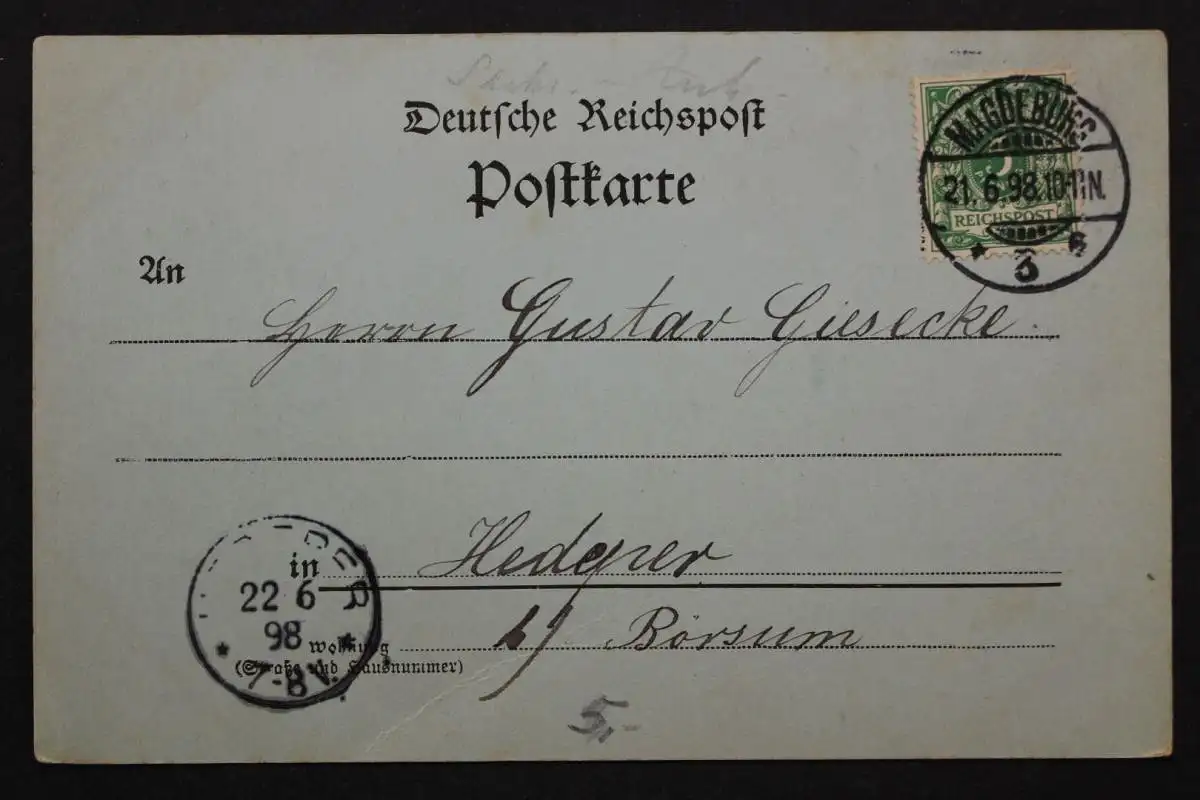 Deutsche Reichspost
Postkarte
MAGDEBURG
21. 6. 98. 10-11 N.
REICHSPOST
* 3 6
An
Herrn Gustav Giesecke.
in
22 6
98
7-8 V.
Wohnung
(Straße und Hausnummer)
b/ Börsum
5,-